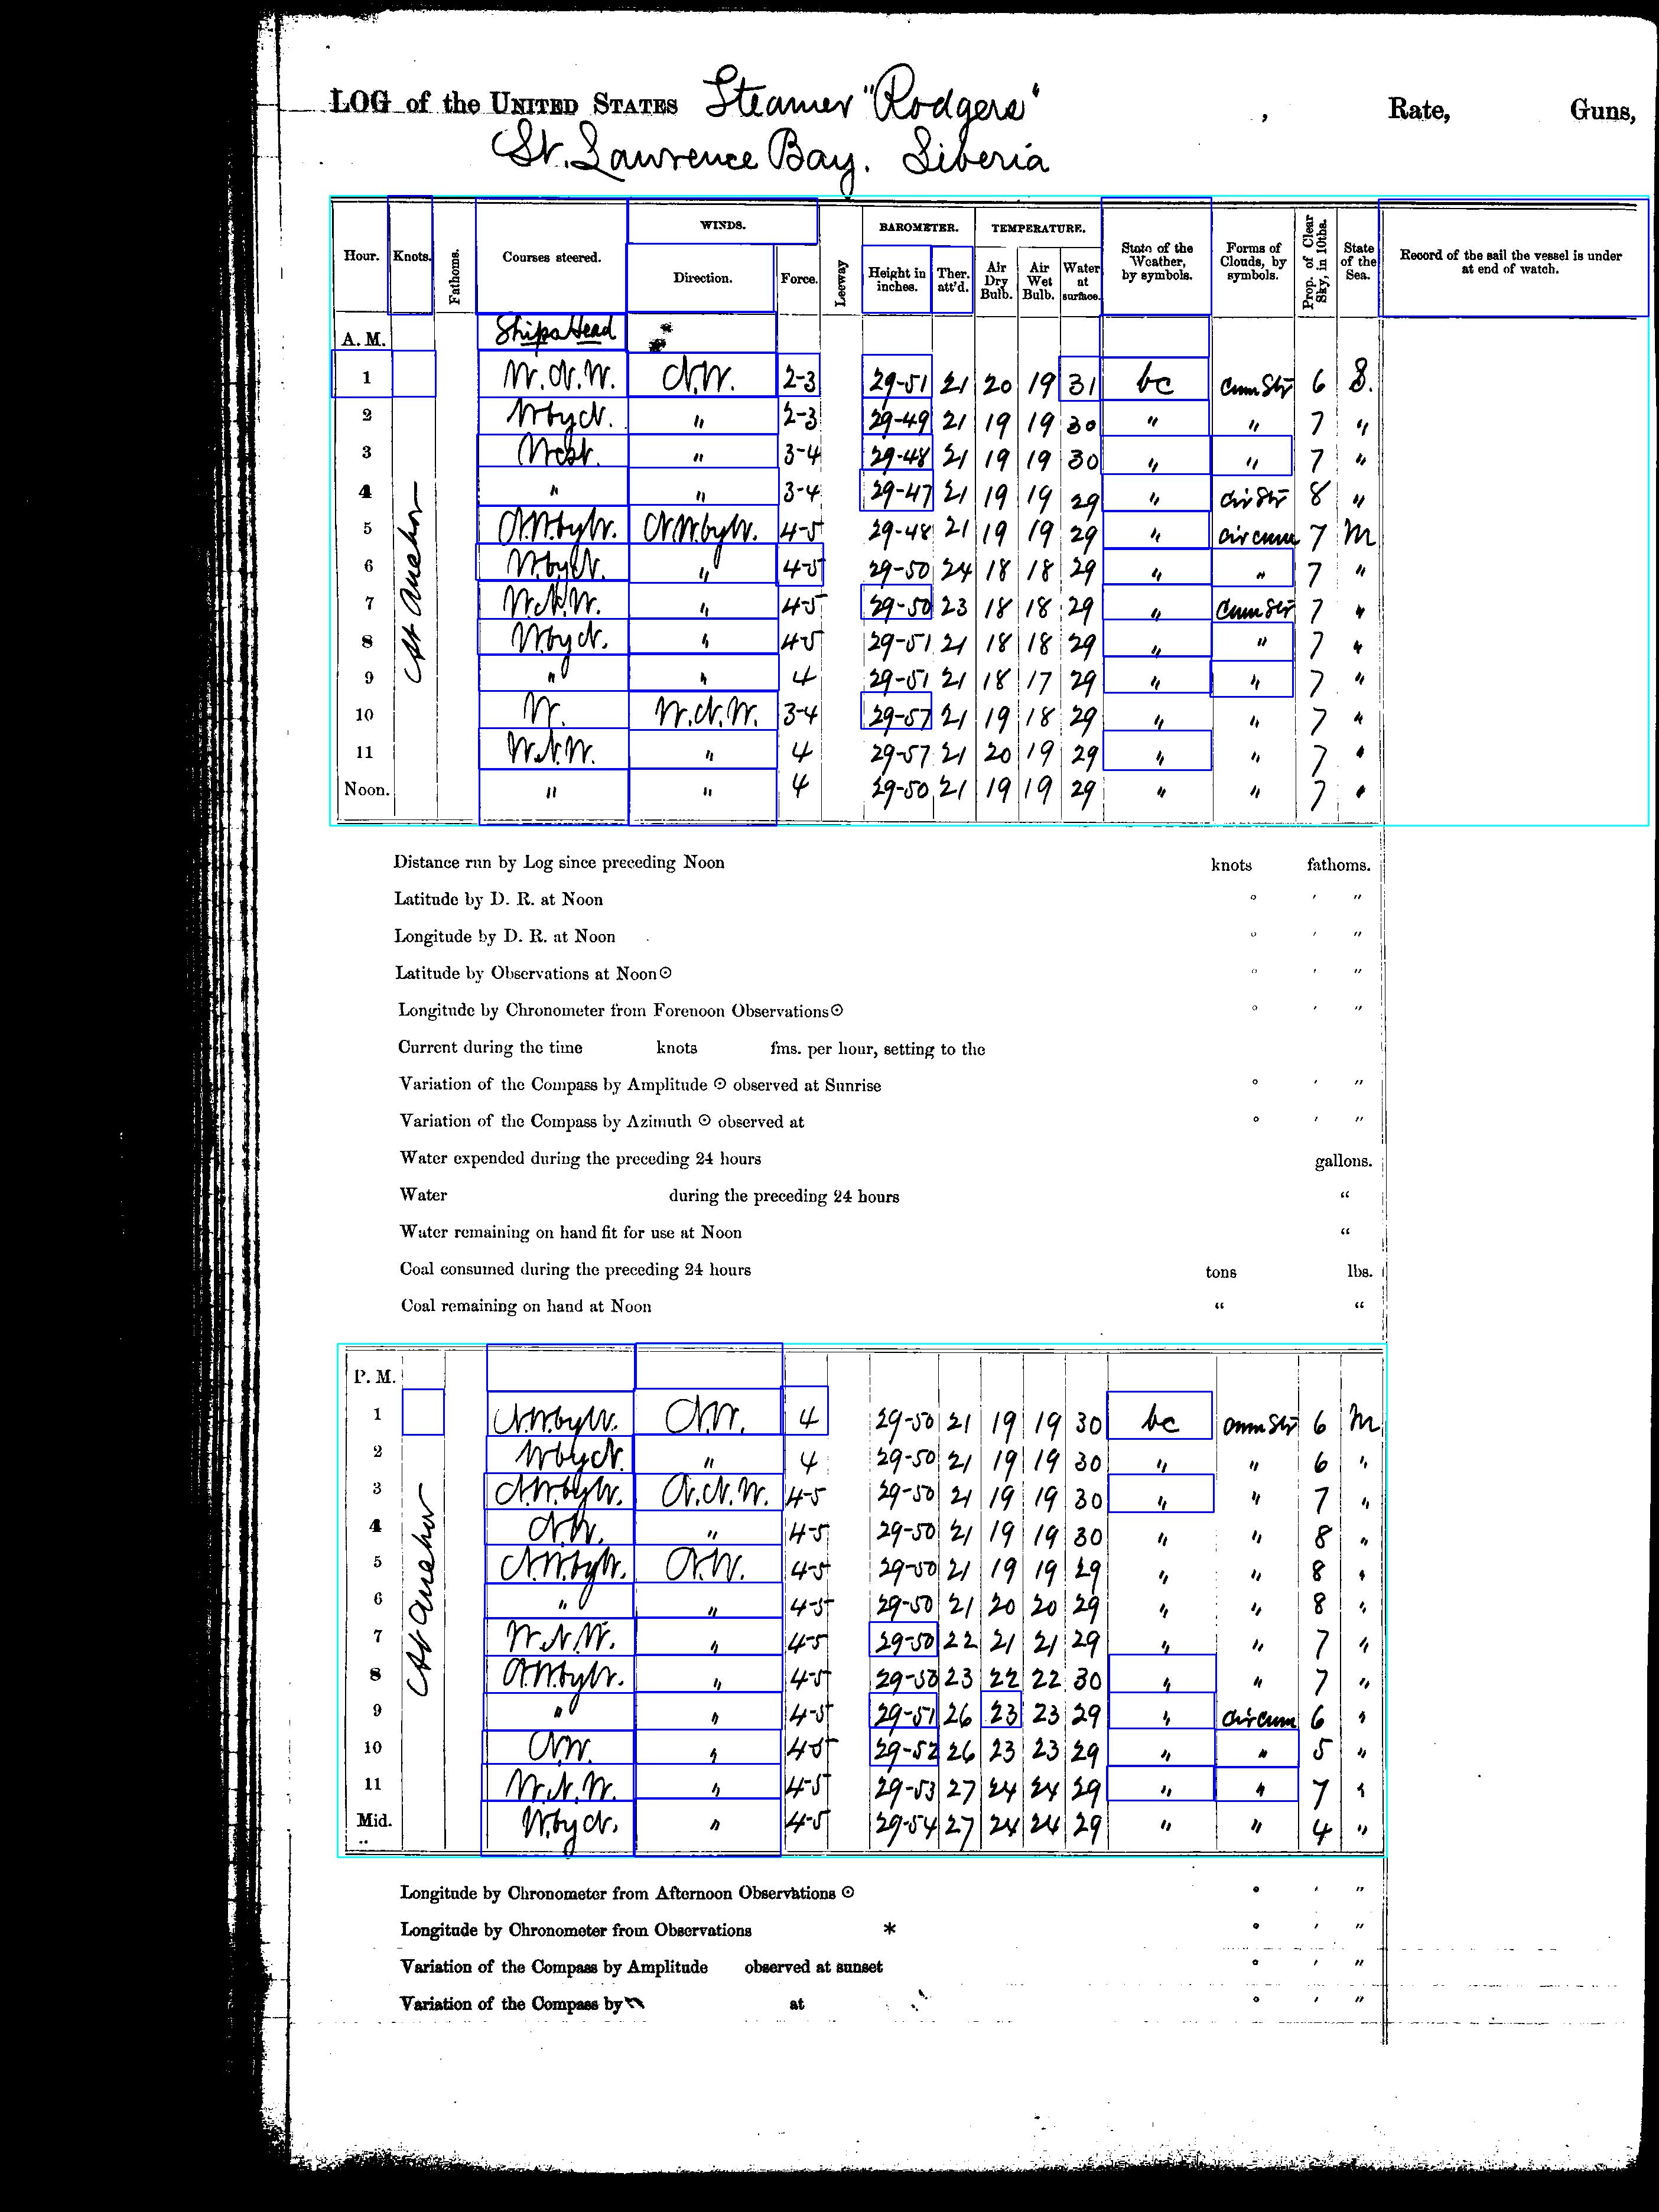 LOG of the UNITED STATES Steamer "Rodgers" , Rate, Guns,
St. Lawrence Bay. Siberia
Hour. Knots. Fathoms. Courses steered. WINDS. Direction. Force. Leeway BAROMETER. Height in inches. Ther. att'd. TEMPERATURE. Air Dry Bulb. Air Wet Bulb. Water at surface. State of the Weather, by symbols. Forms of Clouds, by symbols. Prop. of Clear Sky, in 10ths. State of the Sea. Record of the sail the vessel is under at end of watch.
A. M. Ships Head
At Anchor
1 W.N.W. N.W. 2-3 29-51 21 20 19 31 bc Cum Str 6 S.
2 W by N. " 2-3 29-49 21 19 19 30 " " 7 "
3 West. " 3-4 29-48 21 19 19 30 " " 7 "
4 " " 3-4 29-47 21 19 19 29 " Cir Str 8 "
5 N.W. by W. N.W. by W. 4-5 29-48 21 19 19 29 " Cir cum 7 M
6 W. by N. " 4-5 29-50 24 18 18 29 " " 7 "
7 W.N.W. " 4-5 29-50 23 18 18 29 " Cum Str 7 "
8 W by N. " 4-5 29-51 21 18 18 29 " " 7 "
9 " " 4 29-51 21 18 17 29 " " 7 "
10 W. W.N.W. 3-4 29-57 21 19 18 29 " " 7 "
11 W.N.W. " 4 29-57 21 20 19 29 " " 7 "
Noon. " " 4 29-50 21 19 19 29 " " 7 "
Distance run by Log since preceding Noon knots fathoms.
Latitude by D. R. at Noon ° ′ ″
Longitude by D. R. at Noon ° ′ ″
Latitude by Observations at Noon ☉ ° ′ ″
Longitude by Chronometer from Forenoon Observations ☉ ° ′ ″
Current during the time knots fms. per hour, setting to the
Variation of the Compass by Amplitude ☉ observed at Sunrise ° ′ ″
Variation of the Compass by Azimuth ☉ observed at ° ′ ″
Water expended during the preceding 24 hours gallons.
Water during the preceding 24 hours “
Water remaining on hand fit for use at Noon “
Coal consumed during the preceding 24 hours tons lbs.
Coal remaining on hand at Noon “ “
P. M.
At Anchor
1 N.W. by W. N.W. 4 29-50 21 19 19 30 bc Cum Str 6 M
2 W by N. " 4 29-50 21 19 19 30 " " 6 "
3 N.W. by W. N.N.W. 4-5 29-50 21 19 19 30 " " 7 "
4 N.W. " 4-5 29-50 21 19 19 30 " " 8 "
5 N.W. by W. N.W. 4-5 29-50 21 19 19 29 " " 8 "
6 " " 4-5 29-50 21 20 20 29 " " 8 "
7 W.N.W. " 4-5 29-50 22 21 21 29 " " 7 "
8 N.W. by W. " 4-5 29-50 23 22 22 30 " " 7 "
9 " " 4-5 29-51 26 23 23 29 " Cir cum 6 "
10 N.W. " 4-5 29-52 26 23 23 29 " " 5 "
11 W.N.W. " 4-5 29-53 27 24 24 29 " " 7 "
Mid. W. by N. " 4-5 29-54 27 24 24 29 " " 4 "
Longitude by Chronometer from Afternoon Observations ☉ ° ′ ″
Longitude by Chronometer from Observations * ° ′ ″
Variation of the Compass by Amplitude observed at sunset ° ′ ″
Variation of the Compass by at ° ′ ″